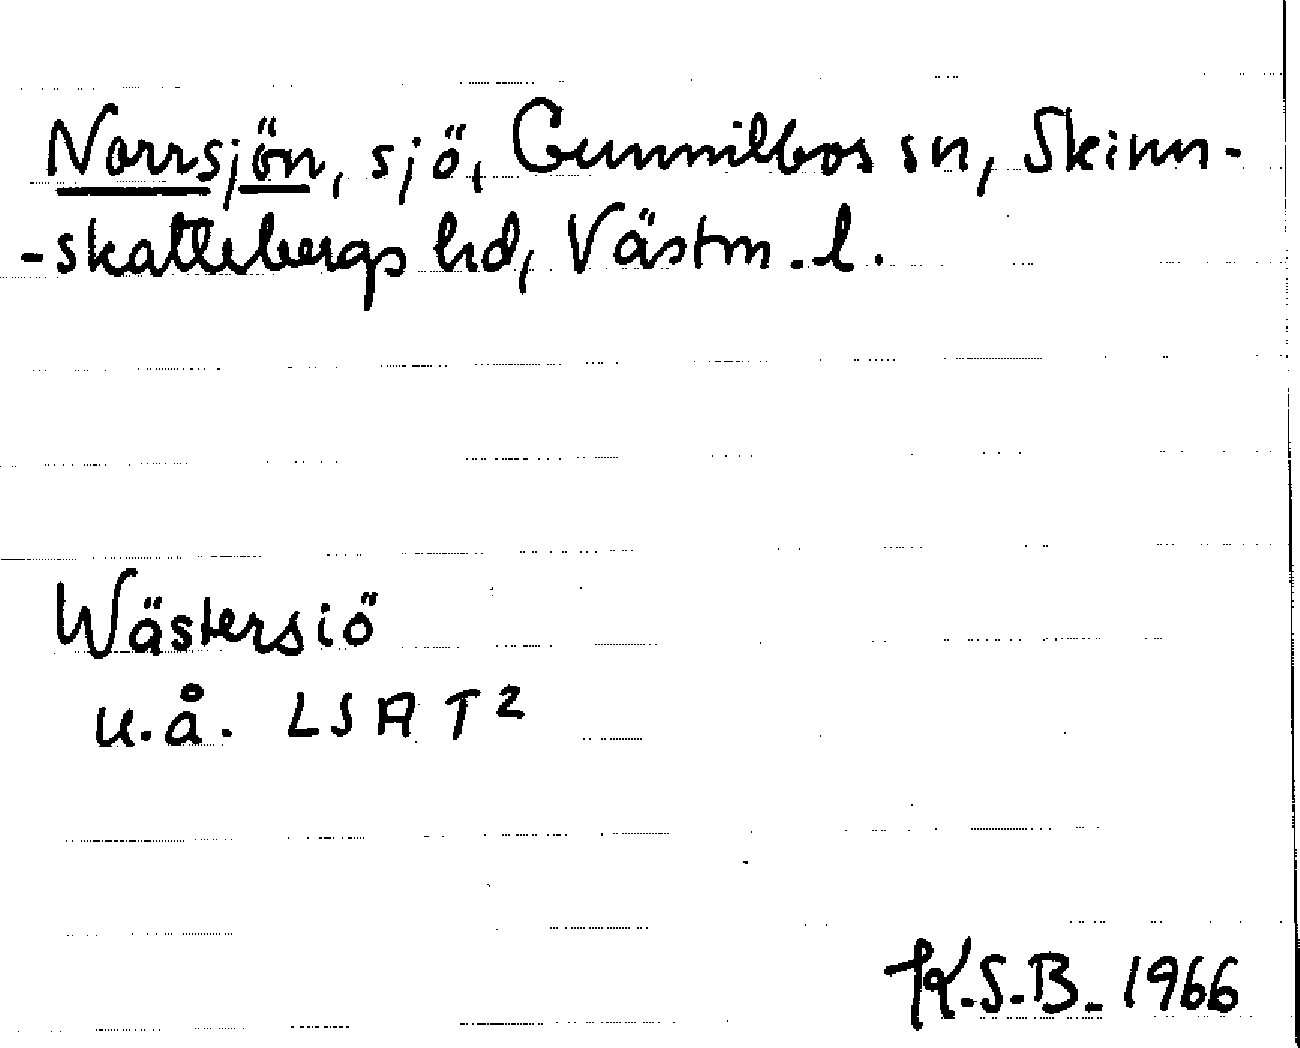 Norrsjön, sjö, Gunnilbos sn, Skinn-
-skattebergs hd, Västm. l.
Wästersiö
u.å. LSA T2
K.S.B. 1966